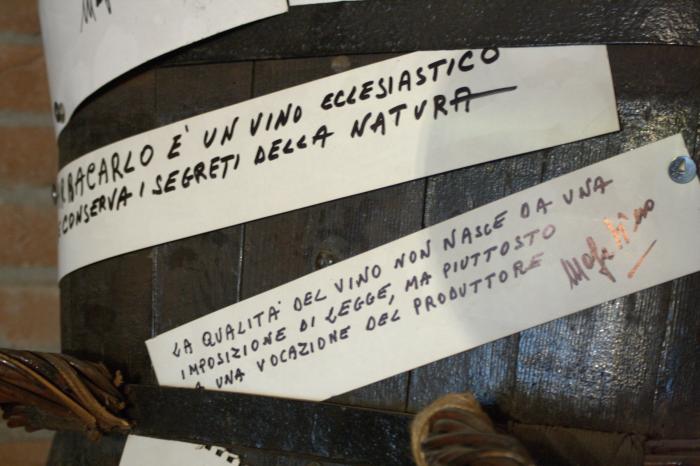 RBACARLO E' UN VINO ECCLESIASTICO
E CONSERVA I SEGRETI DELLA NATURA
LA QUALITA' DEL VINO NON NASCE DA UNA
IMPOSIZIONE DI LEGGE, MA PIUTTOSTO
A UNA VOCAZIONE DEL PRODUTTORE